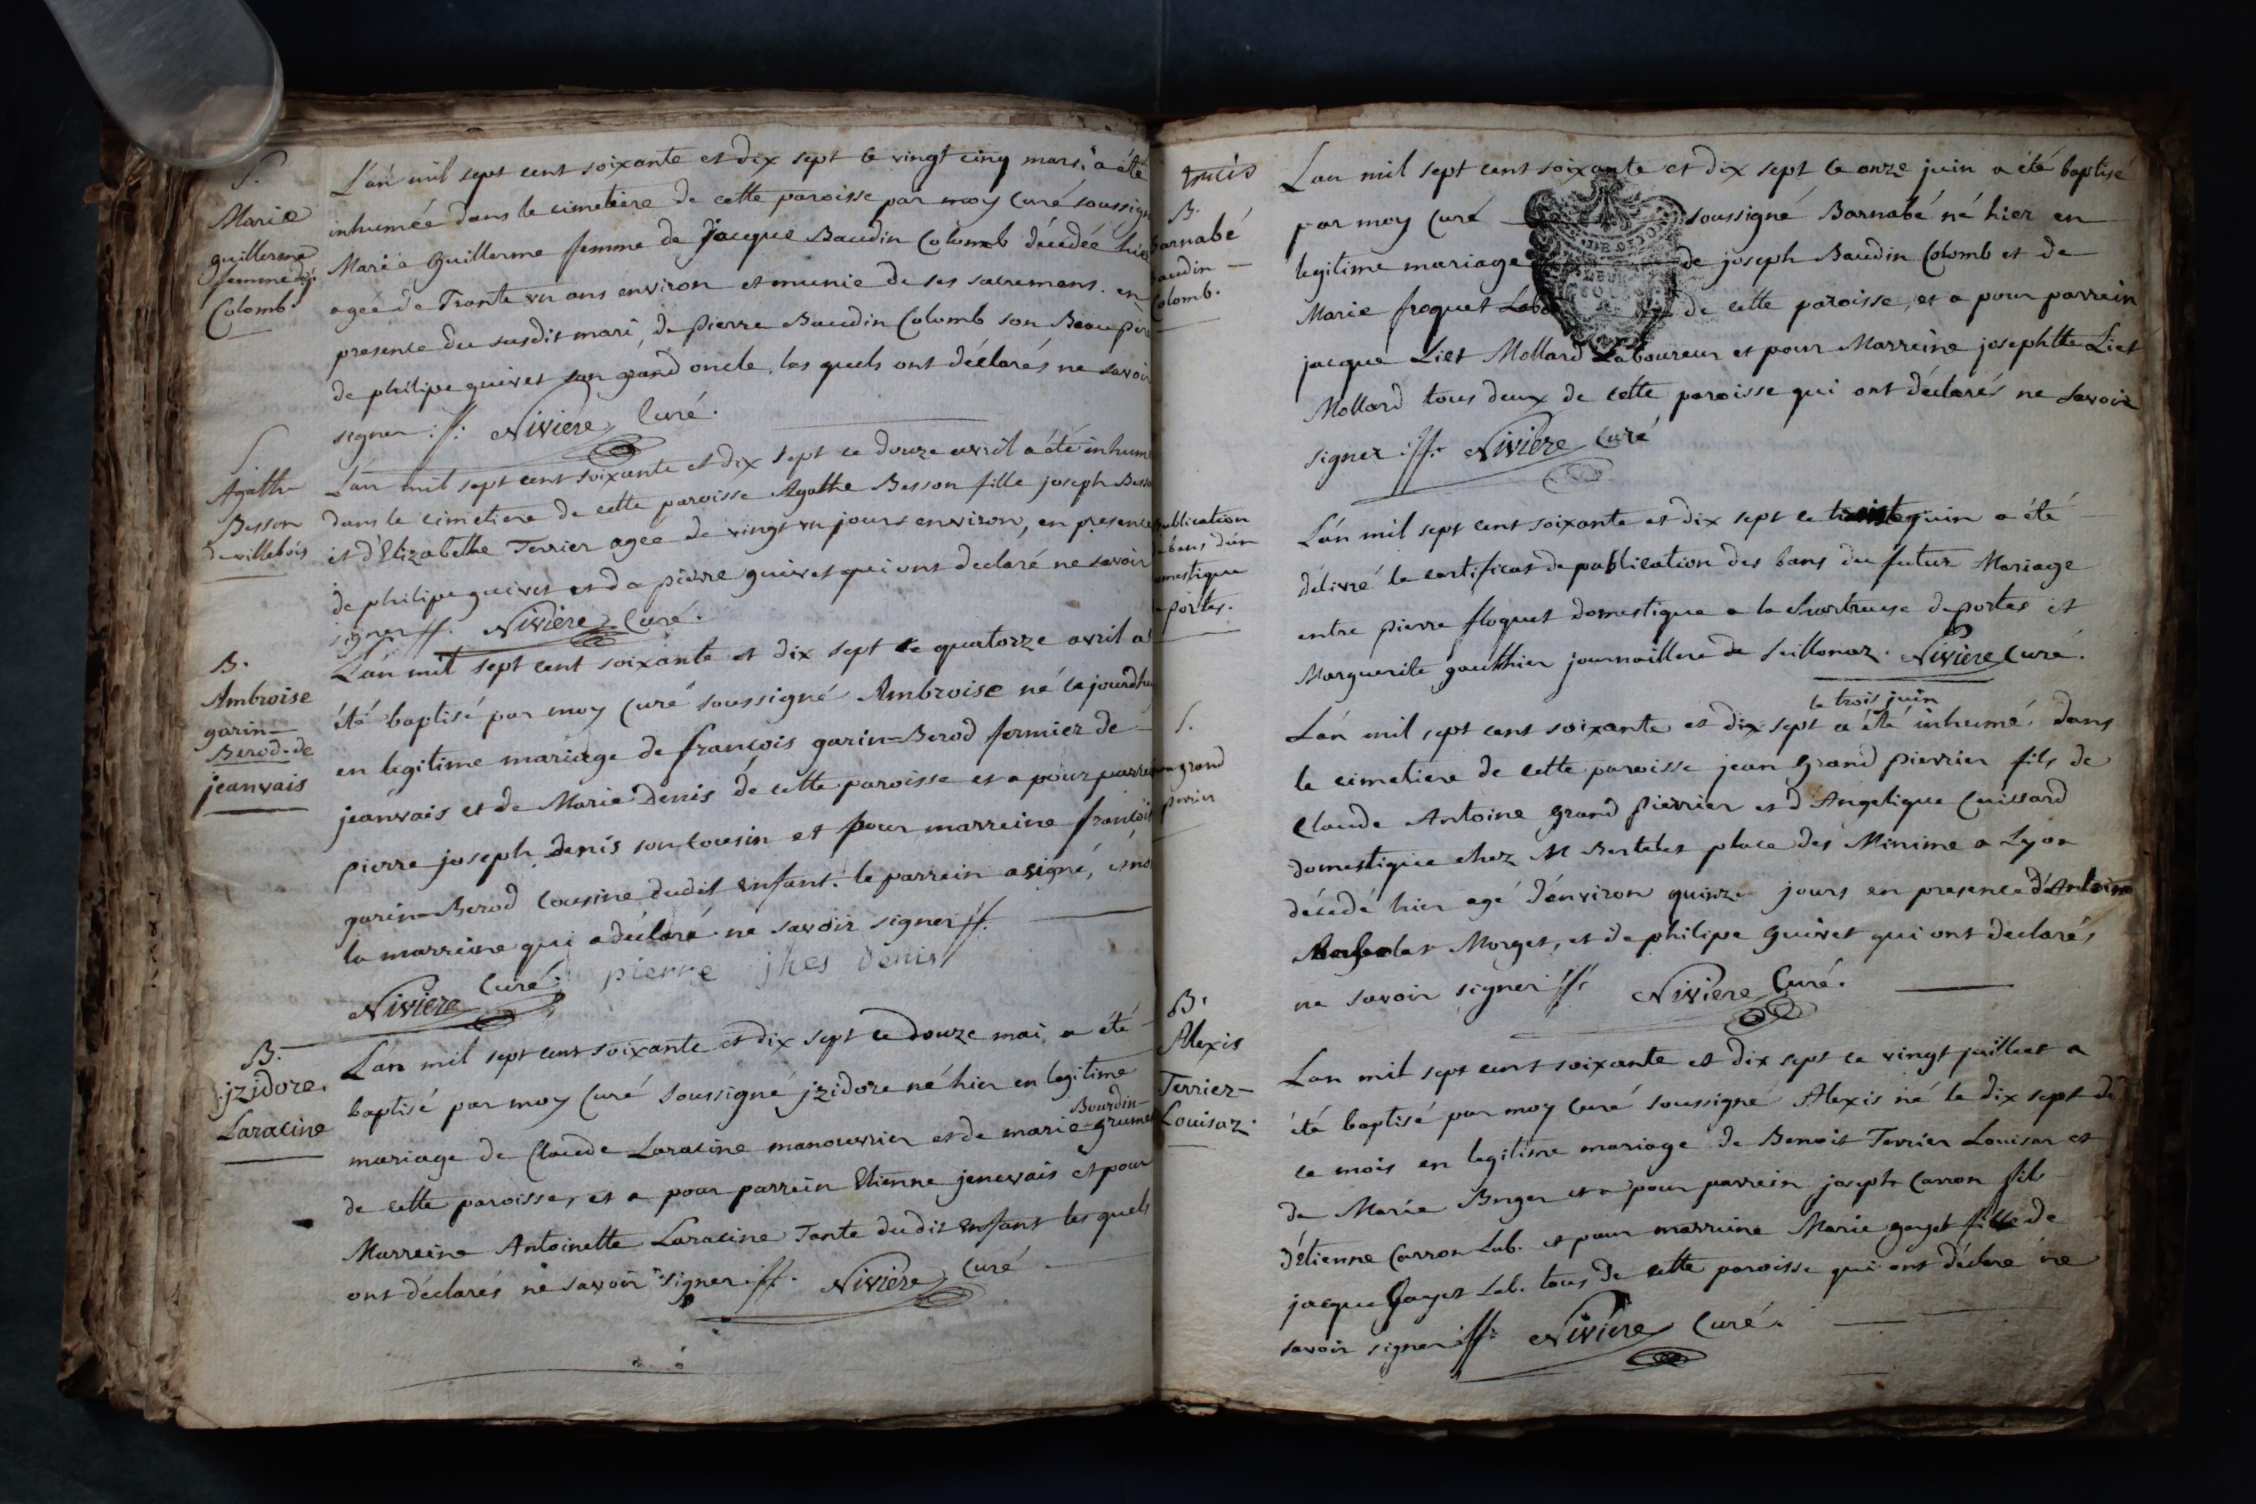 S.
Marie
guillerme
femme
Colomb.
L'an mil sept cent soixante et dix sept le vingt cinq mars a été
inhumée dans le cimetiere de cette paroisse par moy Curé soussigné
Marie Guillerme femme de Jacque Baudin Colomb décédée hier
agée de Trante un ans environ et munie de ses sacremens. en
presence du susdit mari, de pierre Baudin Colomb son Beaupere
de philipe guivet son grand oncle, les quels ont déclarés ne savoir
signer ./. Niviere Curé.
S
Agathe
Besson
de villebois
L'an mil sept cent soixante et dix sept ce douze avril a été inhumé
dans le cimetiere de cette paroisse Agathe Besson fille joseph Besson
et d'Elizabethe Terrier agee de vingt un jours environ, en presence
de philipe guivet et de pierre guivet qui ont declaré ne savoir
signer ff. Niviere Curé.
B.
Ambroise
garin=
Berod. de
jeanvais
L'an mil sept cent soixante et dix sept ce quatorze avril a
été baptisé par moy Curé soussigné Ambroise né ce jourdhui
en legitime mariage de françois garin=Berod fermier de
jeanvais et de Marie Denis de cette paroisse et a pour parrein
pierre joseph Denis son cousin et pour marreine françoise
garin=Berod cousine dudit enfant. le parrein a signé, et non
la marreine qui a déclaré ne savoir signer ff.
Niviere Curé. pierre jhes denis
B.
jzidore.
Laracine
L'an mil sept cent soixante et dix sept ce douze mai a été
baptisé par moy Curé soussigné jzidore né hier en legitime
mariage de Claude Laracine manouvrier et de marie Bourdin=grumet
de cette paroisse, et a pour parrein Etienne jenevais et pour
Marreine Antoinette Laracine Tante dudit enfant les quels
ont déclarés ne savoir signer ./. Niviere Curé
B.
Barnabé
Baudin
Colomb.
L'an mil sept cent soixante et dix sept ce onze juin a été baptisé
par moy Curé soussigné Barnabé né hier en
legitime mariage de joseph Baudin Colomb et de
Marie froquet de cette paroisse, et a pour parrein
jacque Liet Mollard Laboureur et pour Marreine josephtte Liet
Mollard tous deux de cette paroisse qui ont déclarés ne savoir
signer ./. Niviere Curé
publication
bans d'un
domestique
portes.
L'an mil sept cent soixante et dix sept ce juin a été
délivré le certificat de publication des bans du futur Mariage
entre pierre floquet domestique a la chartreuse de portes et
Marguerite gauthier journaillere de Seillonaz. Niviere Curé.
S.
grand
pierrier
L'an mil sept cent soixante et dix sept le trois juin a été inhumé dans
le cimetiere de cette paroisse jean grand pierrier fils de
Claude Antoine grand pierrier et d'Angelique Cuissard
domestique chez M Bertelet place des Minime a Lyon
décédé hier agé d'environ quinze jours en presence d'Antoine
Morget, et de philipe guivet qui ont declarés
ne savoir signer ff. Niviere Curé.
B.
Alexis
Terrier=
Louisaz.
L'an mil sept cent soixante et dix sept ce vingt juillet a
été baptisé par moy Curé soussigné Alexis né le dix sept de
ce mois en legitime mariage de Benoit Terrier Louisaz et
de Marie et a pour parrein joseph Carron fils
d'étienne Carron Lab. et pour marreine Marie gayet fille de
jacque gayet Lab. tous de cette paroisse qui ont déclaré ne
savoir signer ff. Niviere Curé.